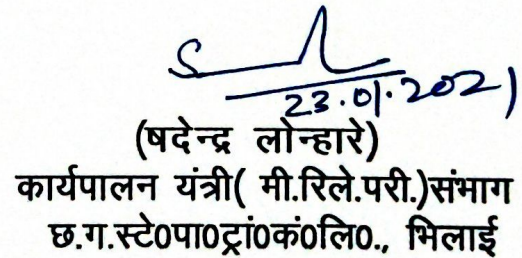 23.01.2021
(षदेन्द्र लोन्हारे)
कार्यपालन यंत्री( मी.रिले.परी.)संभाग
छ.ग.स्टे०पा०ट्रां०कं०लि०., भिलाई